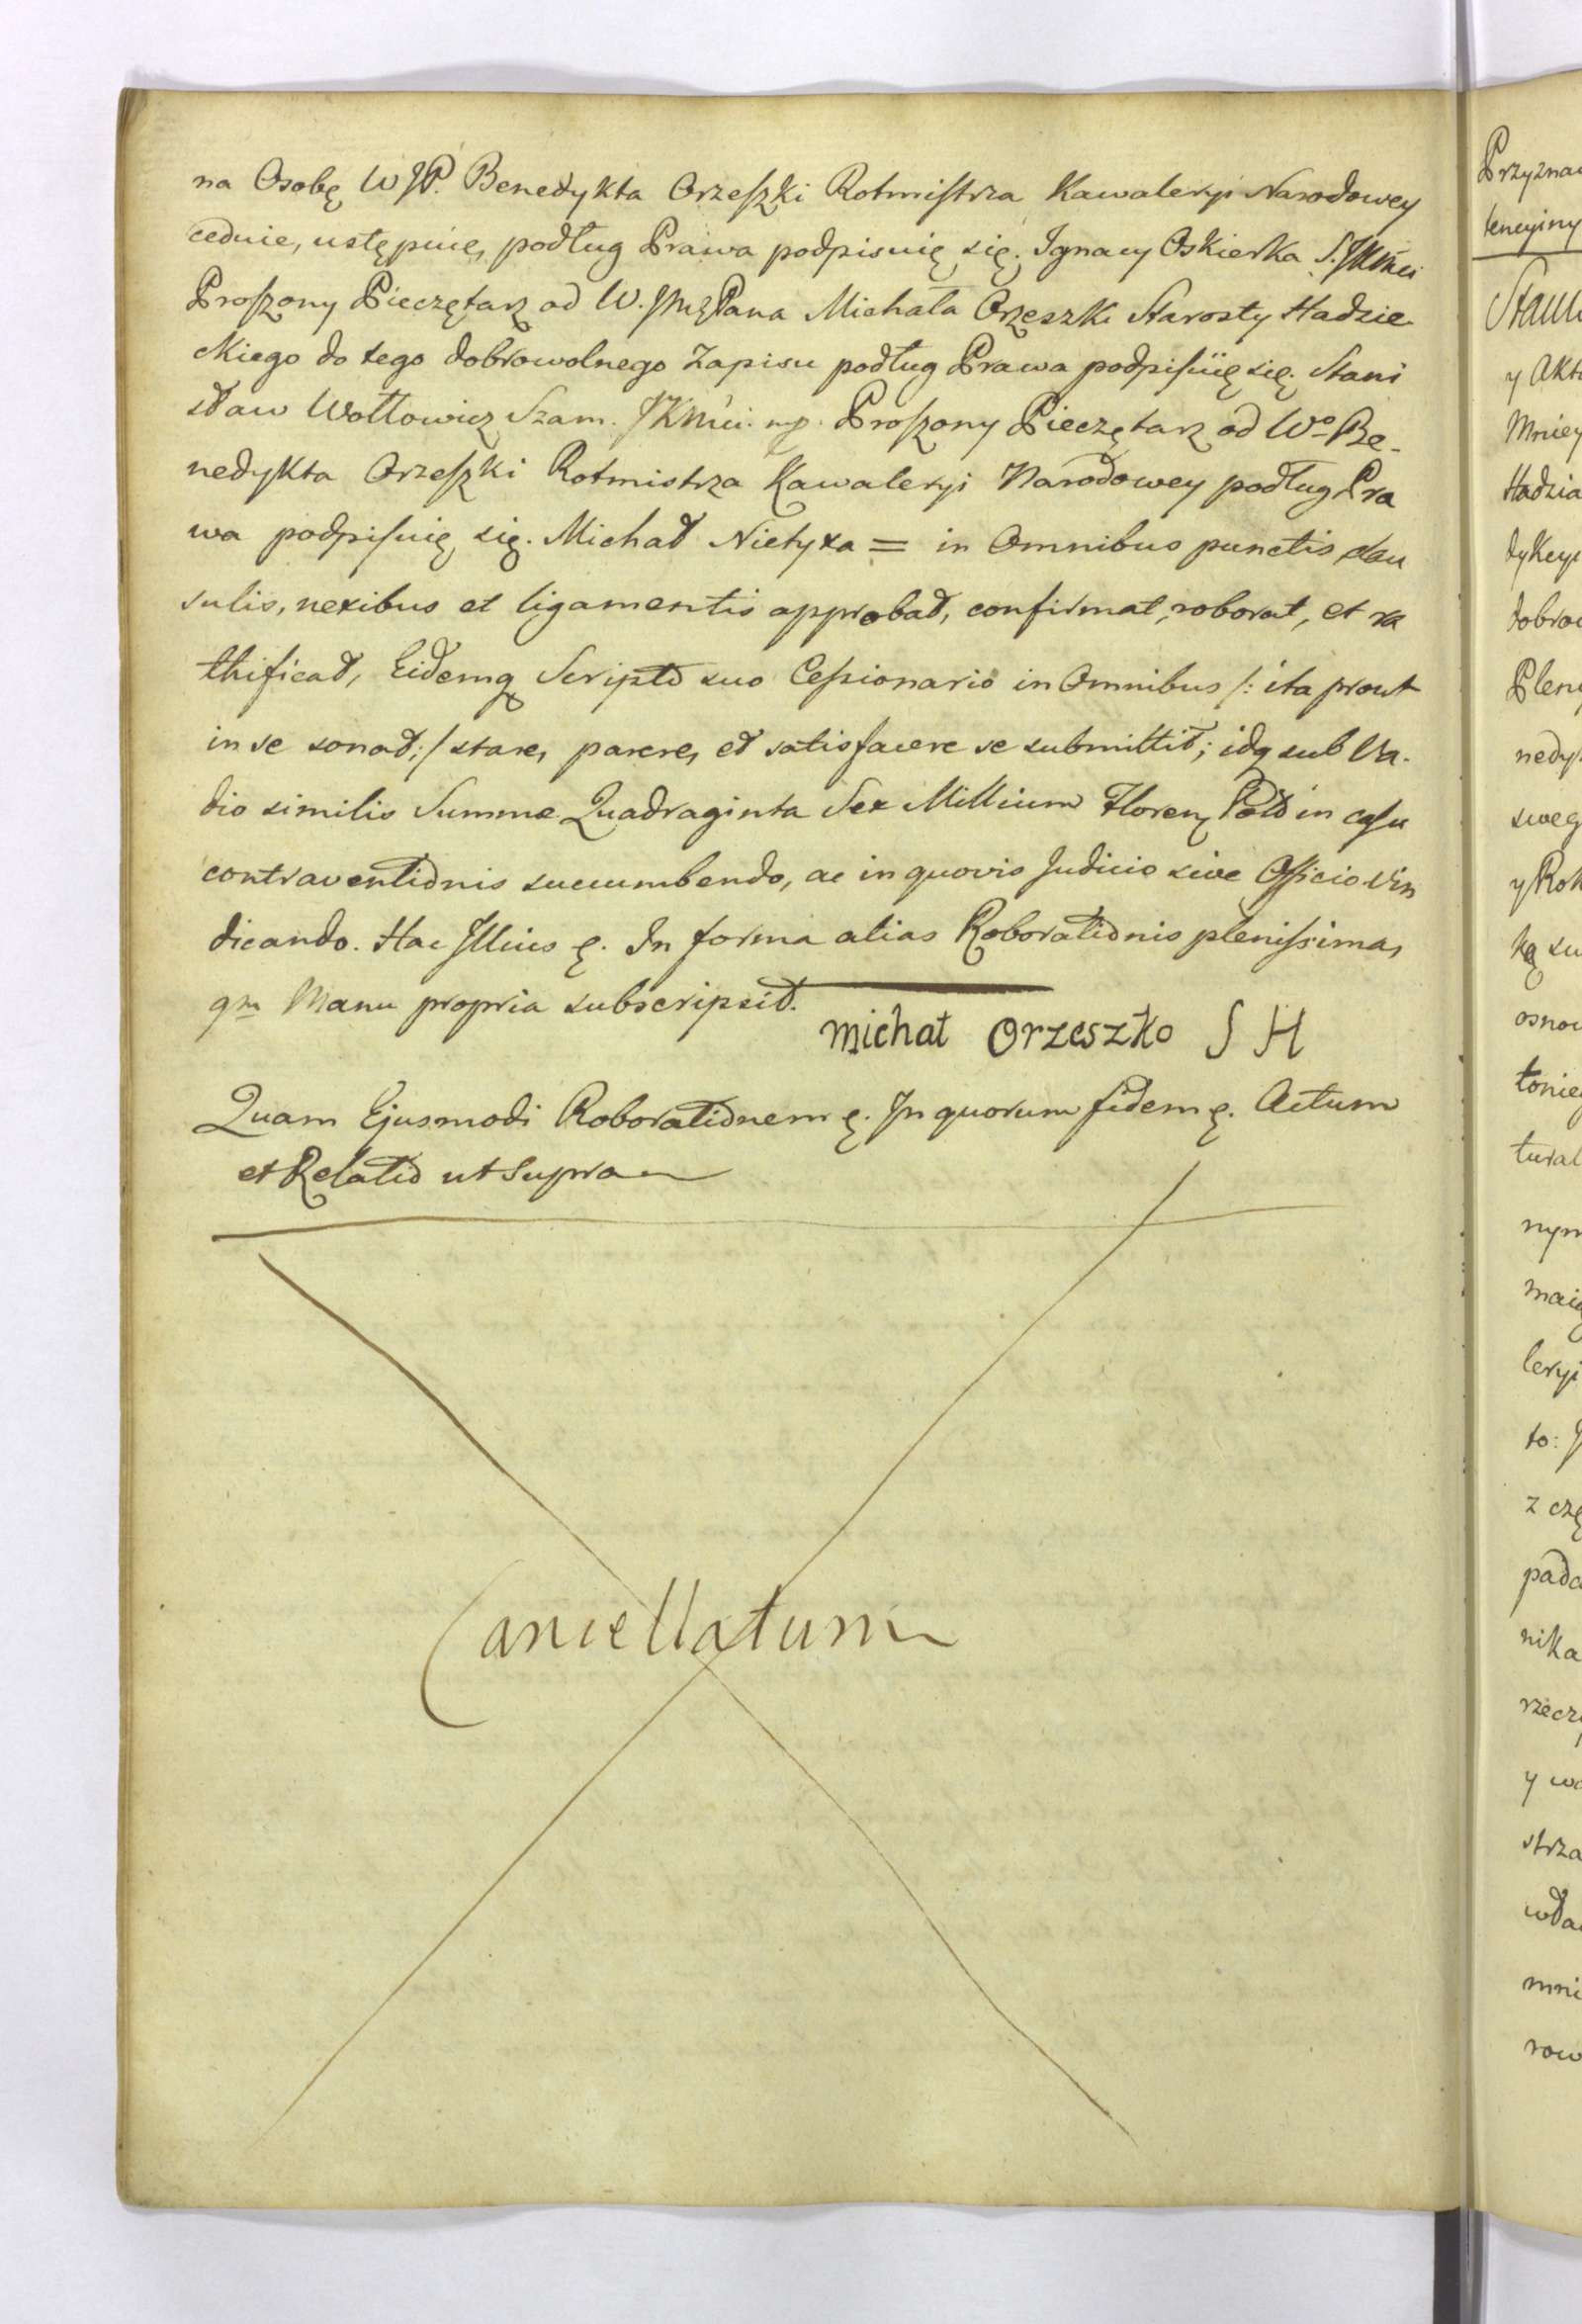 na Osobę WJP. Benedykta Orzeſzki Rotmiſtrza Kawaleryi Narodowey
ceduie, ustępuię, podług Prawa podpisuię się. Ignacy Oskierka S. JKMci
Proſzony Pieczętarz od W. Jmę Pana Michała Orzeszki Starosty Hadzie
ckiego do tego dobrowolnego Zapisu podług Prawa podpiſuię się. Stani
sław Wołłowicz Szam. JKMci. mp. Proſzony Pieczętarz od Wo Be-
nedykta Orzeſzki Rotmistrza Kawaleryi Narodowey podług Pra
wa podpiſuię się. Michał Nietyxa = in Omnibus punctis clau
sulis, nexibus et ligamentis approbat, confirmat, roborat, et ra
thificat, Eidemq Scripto suo Ceſsionario in Omnibus /: ita prout
in se sonat :/ stare, parere, et satisfacere se submittit; idq sub Va-
dio similis Summæ Quadraginta Sex Millium Floren Pol in caſu
contraventionis succumbendo, ac in quovis Judicio sive Officio vin
dicando. Hac Illius ę. In forma alias Roborationis pleniſsima,
qm Manu propria subscripsit.
Michał Orzeszko S H
Quam Ejusmodi Roborationem ę. In quorum fidem ę. Actum
et Relatio ut Supra
Cancellatum
Przyzna
tencyiny
y Akt
Mniey
Hadzia
dykcyi
dobro
Plen
nedy
sweg
y Rot
kę su
osno
tural
nym
leryi
to: J
z czę
pada
nika
rzecz
y wa
strza
wła
mni
row